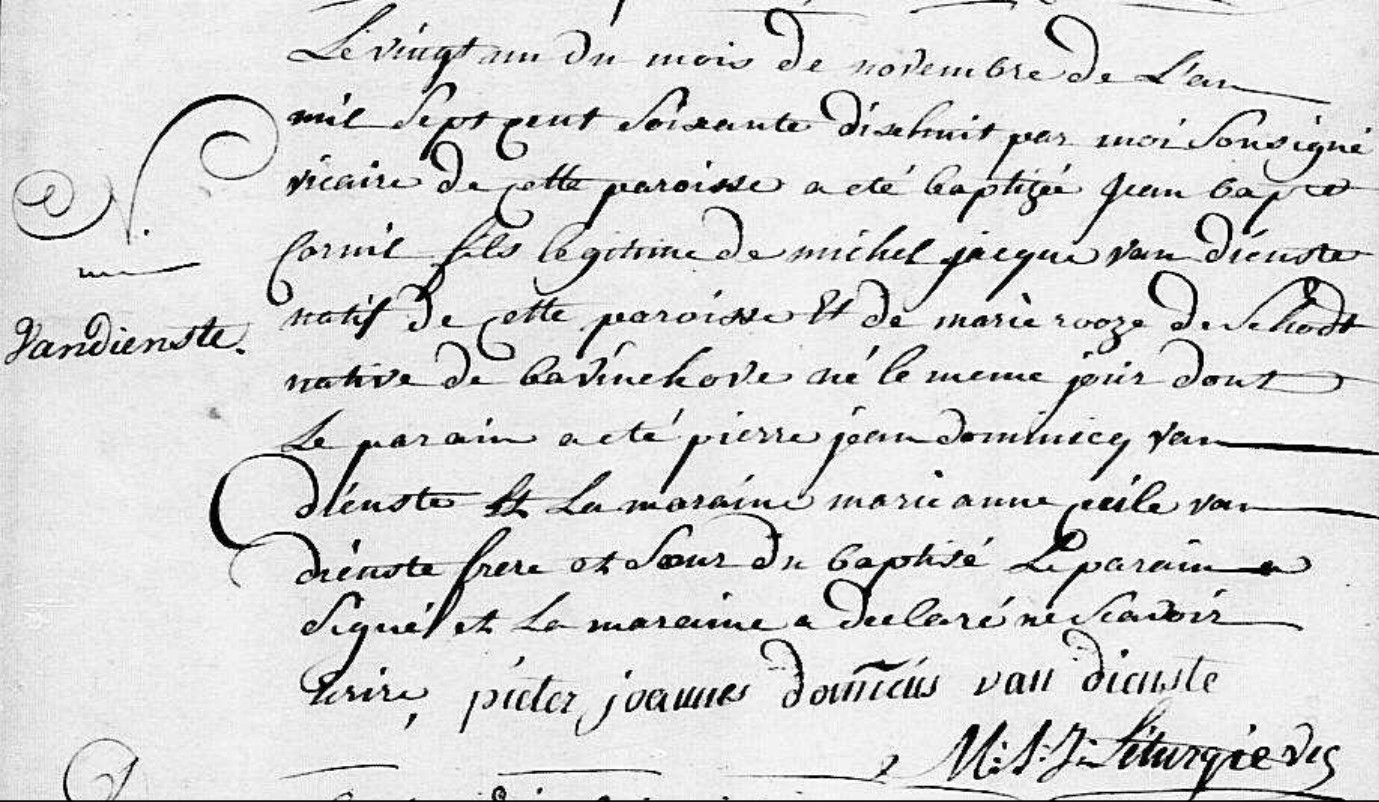 Le vingt un du mois de novembre de L'an
mil sept cent soixante dixhuit par moi sousigné
vicaire de cette paroisse a eté baptizé jean bapte
Cornil fils legitime de michel jacque van dienste
natif de cette paroisse Et de marie rooze de Schodt
Vandienste.
native de bavinchove né le meme jour dont
Le parain a eté pierre jean dominicq van
dienste Et La maraine marie anne cecile van
dienste frere et sœur du baptisé Le parain a
signé et La maraine a declaré ne scavoir
ecrire, pieter joannes domicus van dienste
M: S: J: Liturgie vic